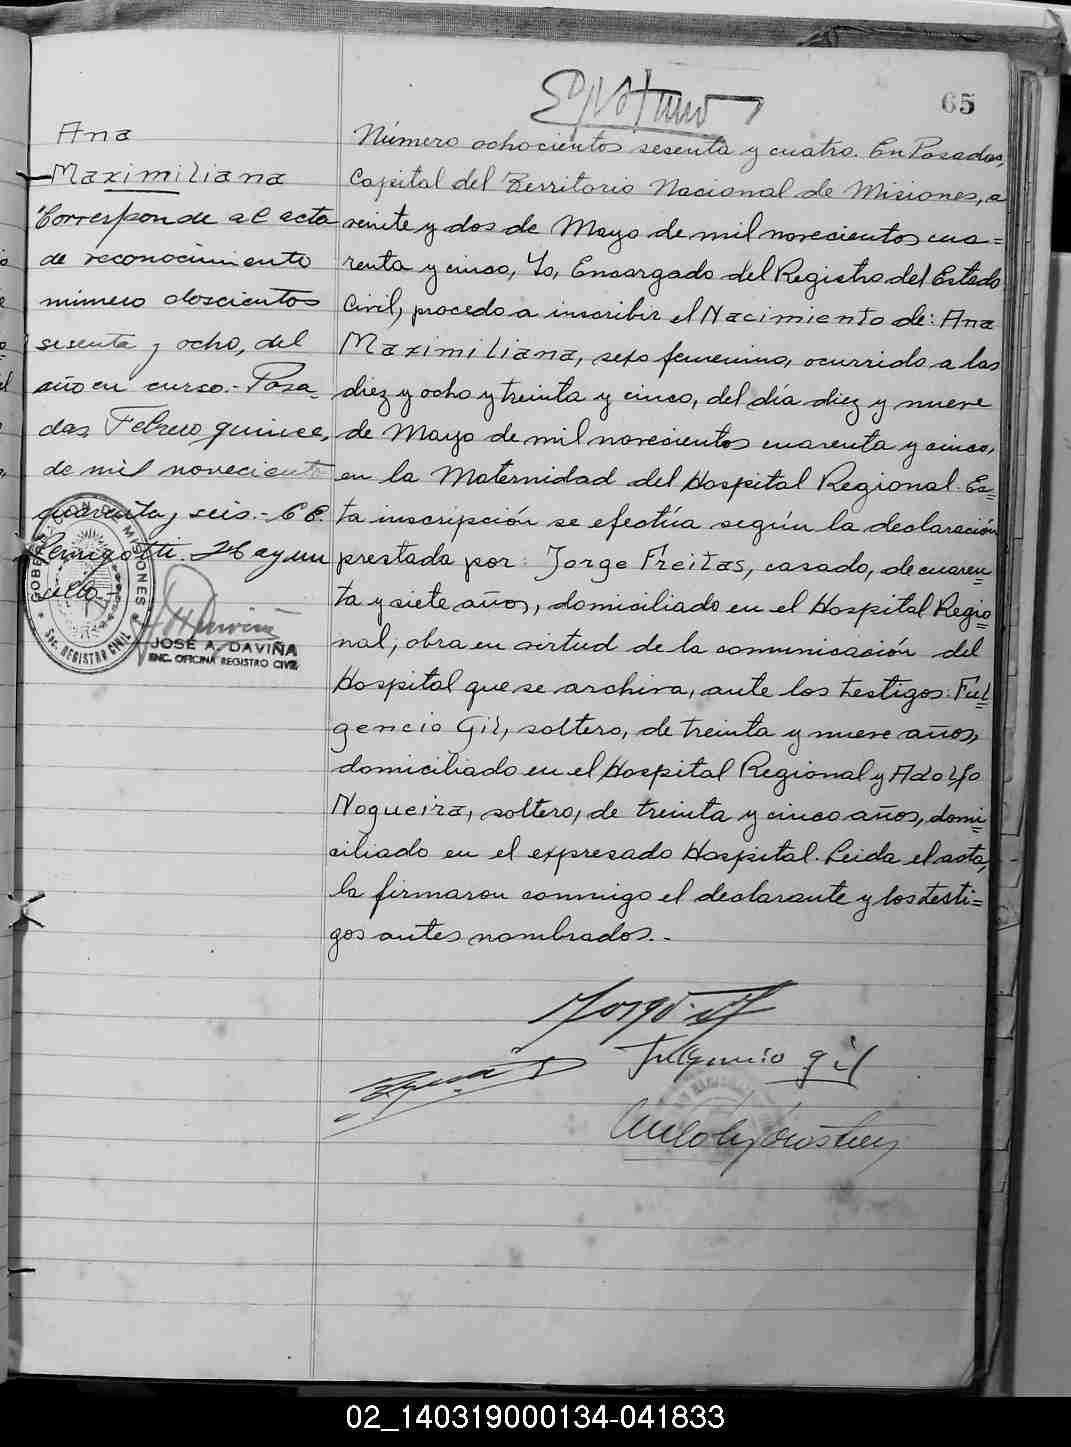 65
Ana
Maximiliana
Corresponde al acta
de reconocimiento
número doscientos
sesenta y ocho, del
año en curso.- Posa-
das, Febrero quince,
de mil novecientos
cuarenta y seis.-
Hay un
sello.-
GOBERNACION DE MISIONES
SEC. REGISTRO CIVIL
JOSE A. DAVIÑA
ENC. OFICINA REGISTRO CIVIL
Número ochocientos sesenta y cuatro. En Posadas,
Capital del Territorio Nacional de Misiones, a
veinte y dos de Mayo de mil novecientos cua=
renta y cinco, Yo, Encargado del Registro del Estado
Civil, procedo a inscribir el Nacimiento de: Ana
Maximiliana, sexo femenino, ocurrido a las
diez y ocho y treinta y cinco, del día diez y nueve
de Mayo de mil novecientos cuarenta y cinco,
en la Maternidad del Hospital Regional. Es=
ta inscripción se efectúa según la declaración
prestada por: Jorge Freitas, casado, de cuaren=
ta y siete años, domiciliado en el Hospital Regio=
nal, obra en virtud de la comunicación del
Hospital que se archiva, ante los testigos: Ful=
gencio Gil, soltero, de treinta y nueve años,
domiciliado en el Hospital Regional y Adolfo
Nogueira, soltero, de treinta y cinco años, domi=
ciliado en el expresado Hospital. Leida el acta,
la firmaron conmigo el declarante y los testi=
gos antes nombrados.-
Fulgencio Gil
02_140319000134-041833